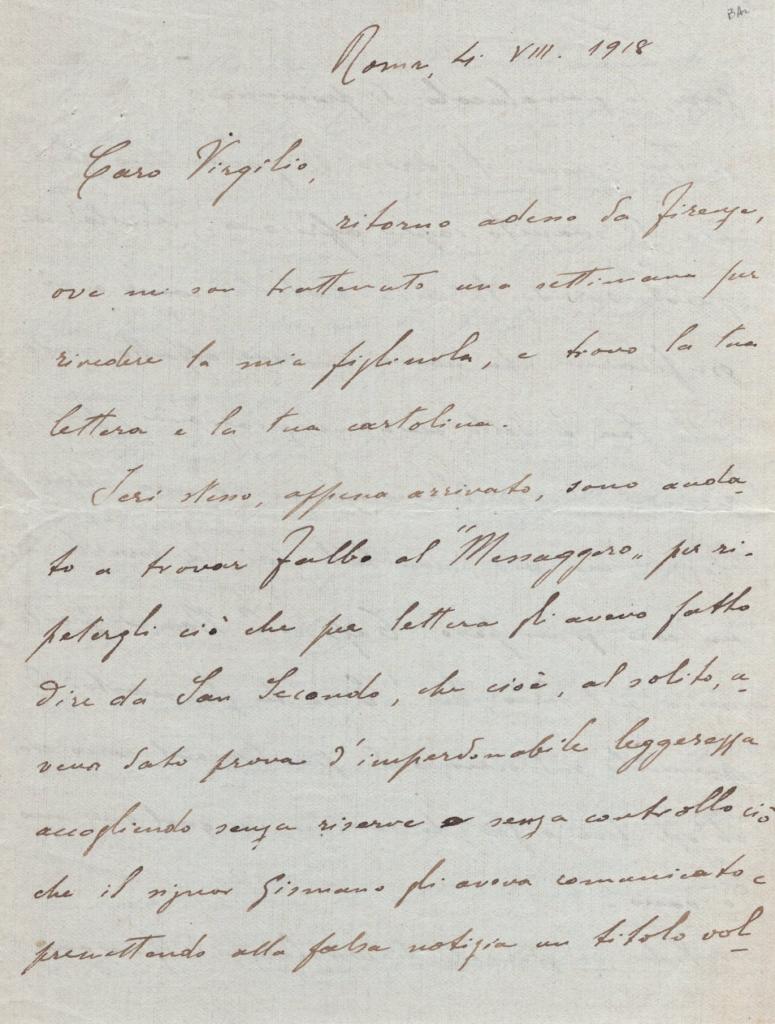 BA2
Roma, 4. VIII. 1918
Caro Virgilio,
ritorno adesso da Firenze,
ove mi son trattenuto una settimana per
rivedere la mia figliuola, e trovo la tua
lettera e la tua cartolina.
Ieri stesso, appena arrivato, sono anda-
to a trovar Falbo al "Messaggero" per ri-
petergli ciò che per lettera gli avevo fatto
dire da San Secondo, che cioè, al solito, a-
veva dato prova d'imperdonabile leggerezza
accogliendo senza riserve e senza controllo ciò
che il signor Gismano gli aveva comunicato e
premettendo alla falsa notizia un titolo vol-